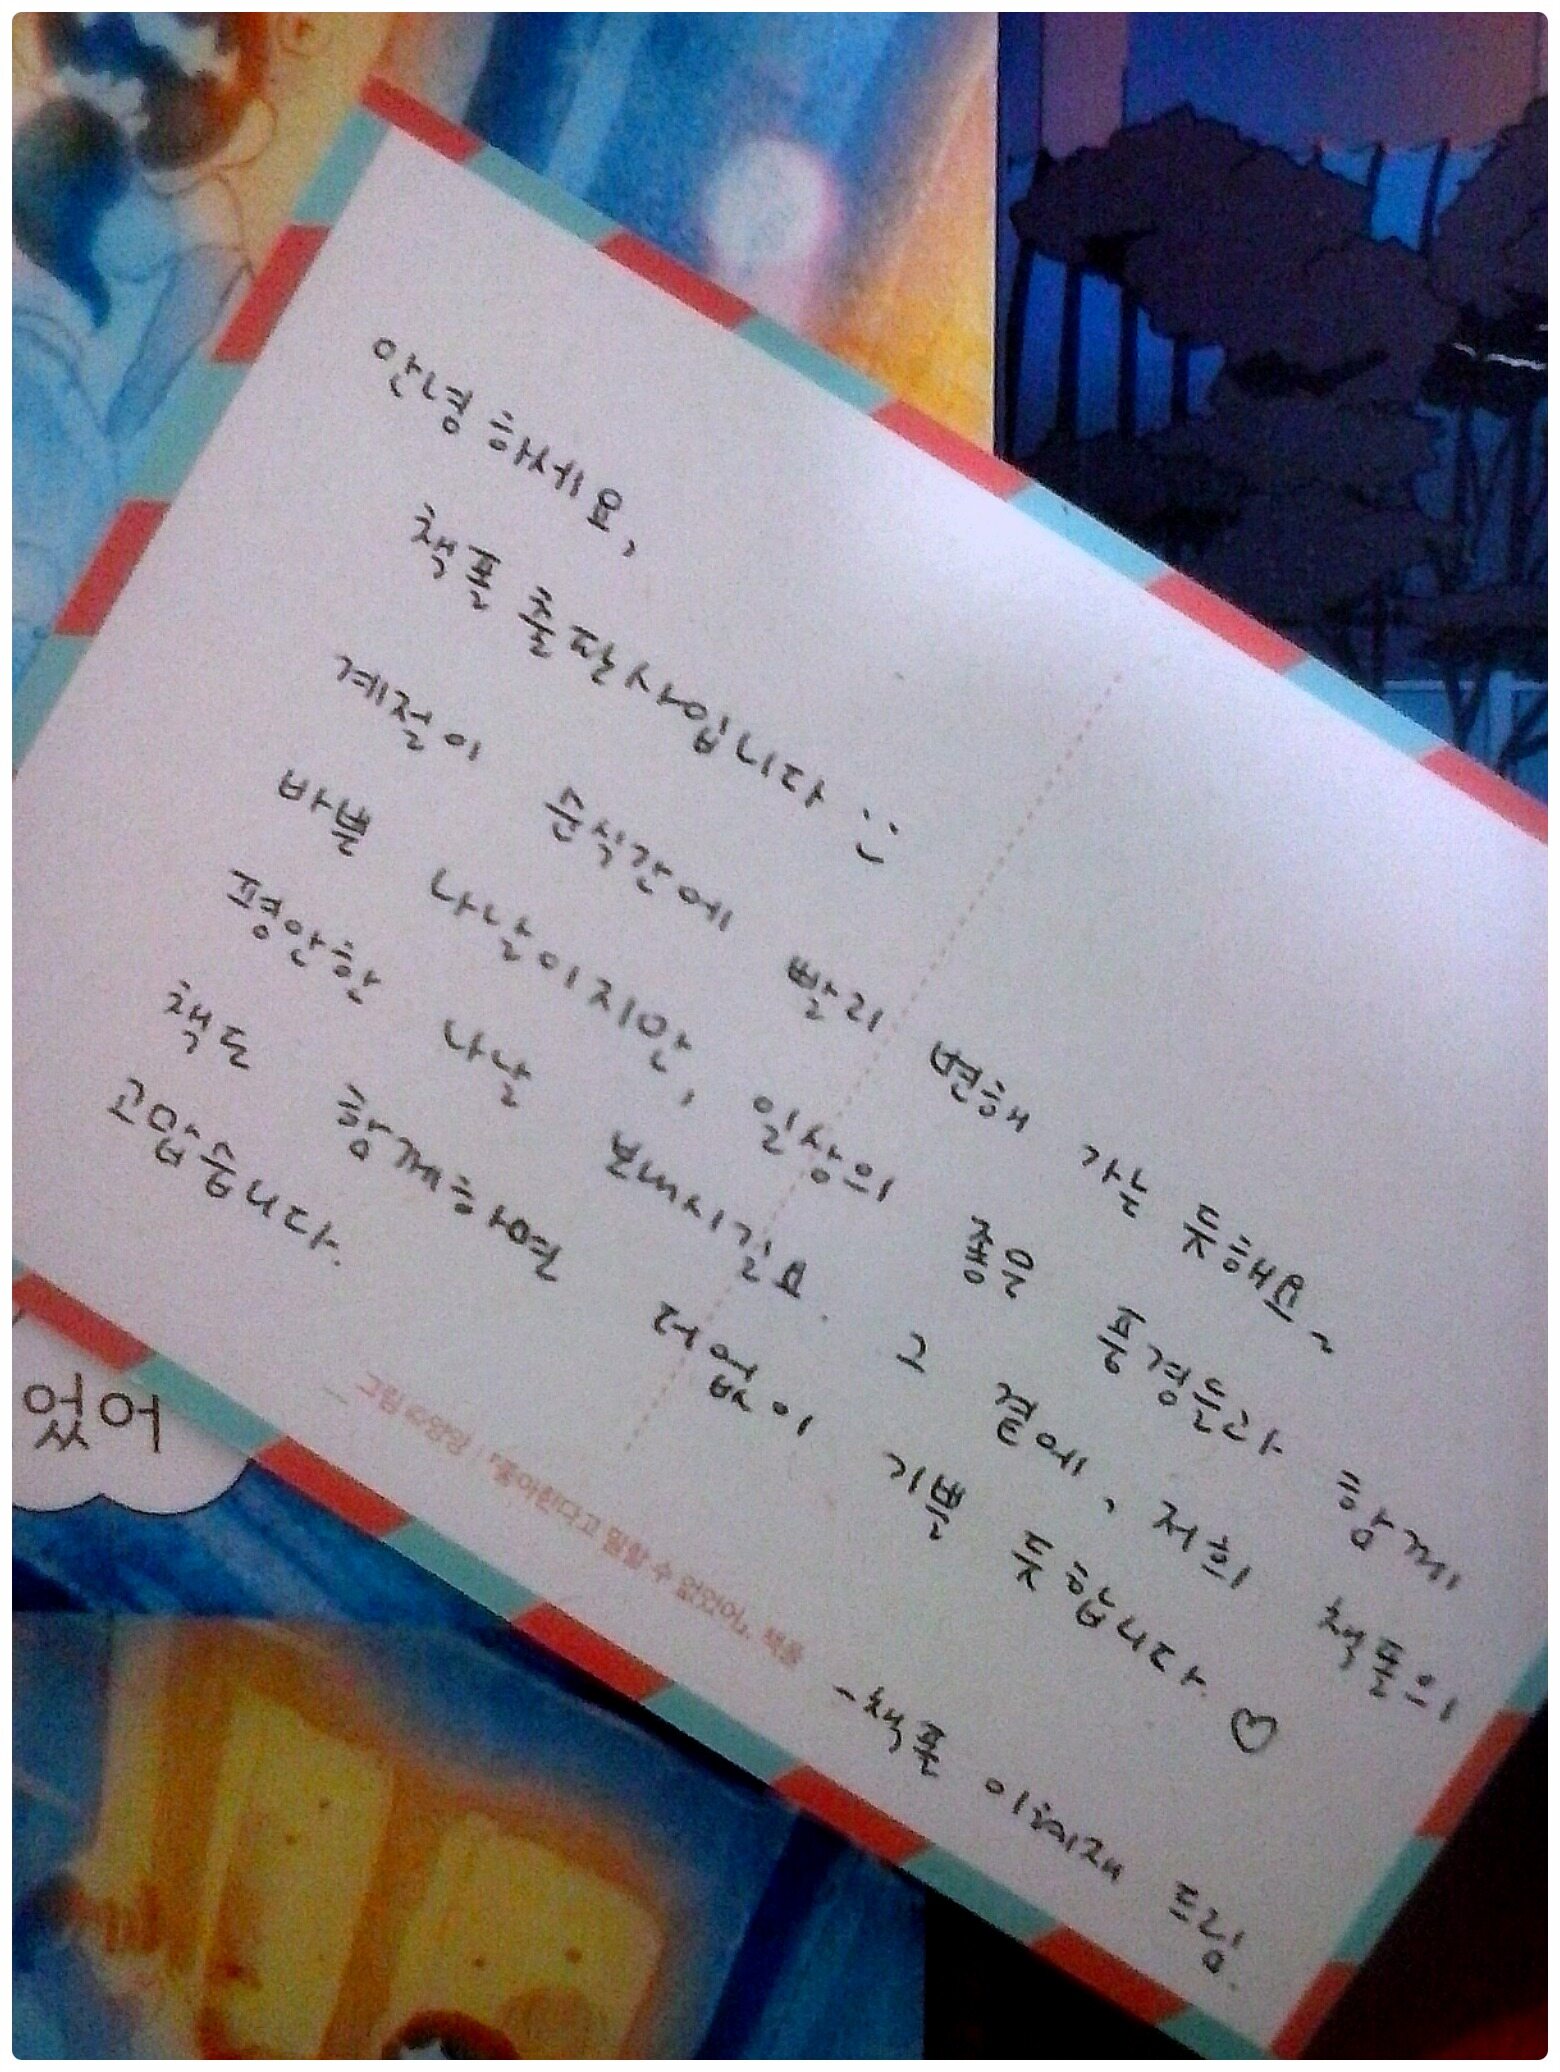 안녕하세요,
책폴 출판사입니다 :)
계절이 순식간에 빨리 변해 가는 듯해요~
바쁜 나날이지만, 일상의 좋은 풍경들과 함께
평안한 나날 보내시길요. 그 곁에, 저희 책폴의
책도 함께하면 더없이 기쁠 듯합니다 ♡
고맙습니다.
-책폴 이혜재 드림.
좋아한다고 말할 수 없었어, 책폴
었어